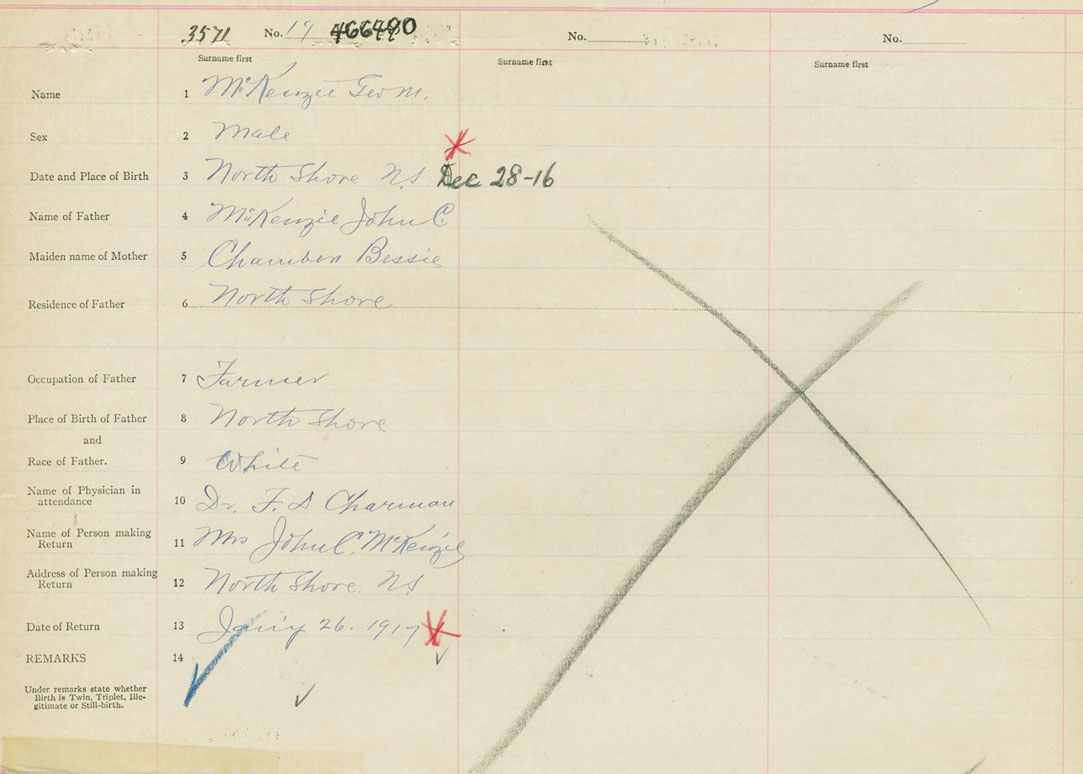 3571 No. 19 466490 No. No.
Surname first Surname first Surname first
Name 1 McKenzie Geo M.
Sex 2 Male
Date and Place of Birth 3 North Shore N.S Dec 28-16
Name of Father 4 McKenzie John C.
Maiden name of Mother 5 Bessie
Residence of Father 6 North Shore
Occupation of Father 7 Farmer
Place of Birth of Father 8 North Shore
and
Race of Father. 9 White
Name of Physician in
attendance 10 Dr. F. D Charman
Name of Person making
Return 11 Mrs John C. McKenzie
Address of Person making
Return 12 North Shore. N.S
Date of Return 13 26. 1917
REMARKS 14
Under remarks state whether
Birth is Twin, Triplet, Ille-
gitimate or Still-birth.